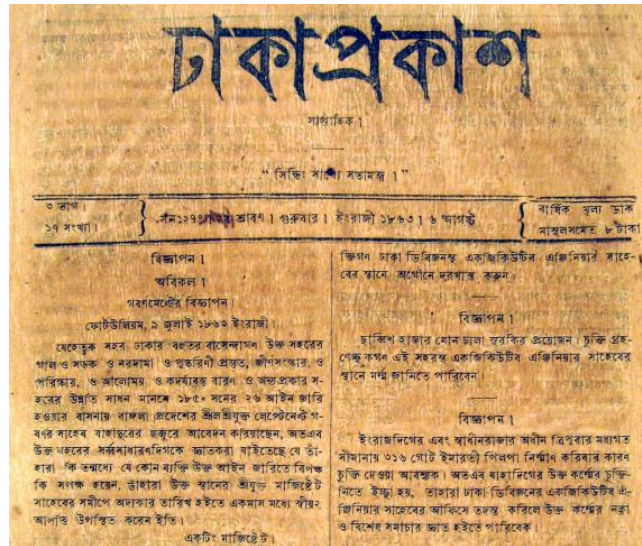 ঢাকাপ্রকাশ
সাপ্তাহিক।
"সিদ্ধিঃ সাধ্যে সতামস্তু।"
৩ ভাগ।
১৭ সংখ্যা।
সন১২৭০ শ্রাবণ। গুরুবার। ইংরাজী ১৮৬৩। ৬ আগষ্ট
বার্ষিক মূল্য ডাক
মাসুলসমেত ৮ টাকা
বিজ্ঞাপন।
অবিকল।
গবর্ণমেন্টের বিজ্ঞাপন
ফোর্টউলিয়ম, ৯ জুলাই ১৮৬৩ ইংরাজী।
যেহেতুক সহর ঢাকার বহুতর বাসেন্দাগণ উক্ত সহরের
গলি ও সড়ক ও নরদামা ও পুষ্করিণী প্রস্তুত, জীর্ণসংস্কার, ও
পরিস্কার, ও আলোময় ও কদর্য্যবস্তু বারণ ও অন্যপ্রকার স-
হরের উন্নতি সাধন মানসে ১৮৫০ সনের ২৬ আইন জারি
হওয়ার বাসনায় বাঙ্গলা প্রদেশের শ্রীলশ্রীযুক্ত লেপ্টেনেন্ট গ-
বর্ণর সাহেব বাহাদুরের হুজুরে আবেদন করিয়াছেন, অতএব
উক্ত সহরের সর্ব্বসাধারণদিগকে জ্ঞাতকরা যাইতেছে যে তাঁ-
হারা কি তন্মধ্যে যে কোন ব্যক্তি উক্ত আইন জারিতে বিপক্ষ
কি সপক্ষ হয়েন, তাঁহারা উক্ত স্থানের শ্রীযুক্ত মাজিষ্ট্রেট
সাহেবের সমীপে অদ্যকার তারিখ হইতে একমাস মধ্যে স্বীয়২
আপত্তি উপস্থিত করেন ইতি।
একটিং মাজিষ্ট্রেট।
ক্তিগণ ঢাকা ডিবিজনস্থ একজিকিউটিব এঞ্জিনিয়ার সাহে-
বের স্থানে অগৌনে দরখাস্ত করুন।
বিজ্ঞাপন।
ছাব্বিশ হাজার মোন চালা সুরকির প্রয়োজন। চুক্তি গ্রহ-
ণেচ্ছুকগণ এই সহরস্থ একজিকিউটিব এঞ্জিনিয়ার সাহেবের
স্থানে মর্ম্ম জানিতে পারিবেন।
বিজ্ঞাপন।
ইংরাজদিগের এবং স্বাধীনরাজার অধীন ত্রিপুরার মধ্যগত
সীমানায় ৩১৬ গোট ইমারতী পিলপা নির্ম্মাণ করিবার কারণ
চুক্তি দেওয়া আবশ্যক। অতএব যাহাদিগের উক্ত কর্ম্মের চুক্তি-
নিতে ইচ্ছা হয়, তাহারা ঢাকা ডিবিজনের একজিকিউটিব এ-
ঞ্জিনিয়ার সাহেবের আফিসে তদন্ত করিলে উক্ত কর্ম্মের নক্সা
ও বিশেষ সমাচার জ্ঞাত হইতে পারিবেক।